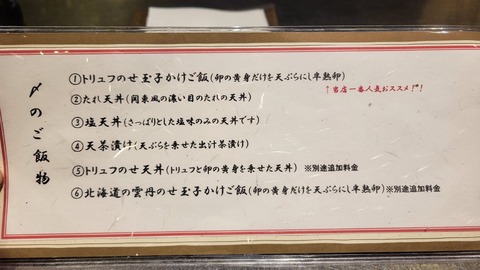 〆のご飯物
①トリュフのせ玉子かけご飯(卵の黄身だけを天ぷらにし半熟卵)
↑当店一番人気おススメ!!
②たれ天丼(関東風の濃い目のたれの天丼)
③塩天丼(さっぱりとした塩味のみの天丼です)
④天茶漬け(天ぷらを乗せた出汁茶漬け)
⑤トリュフのせ天丼(トリュフと卵の黄身を乗せた天丼) ※別途追加料金
⑥北海道の雲丹のせ玉子かけご飯(卵の黄身だけを天ぷらにし半熟卵)※別途追加料金